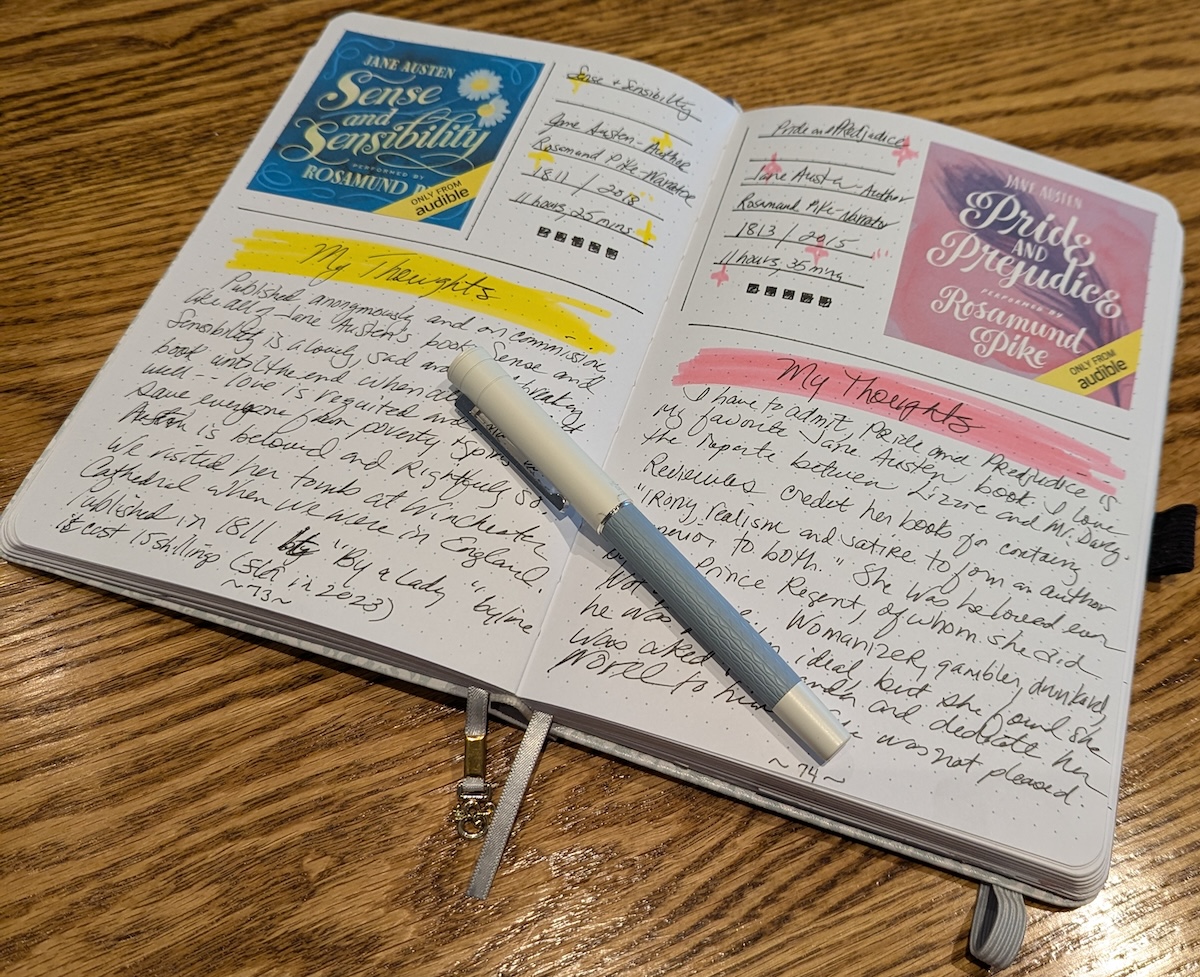 JANE AUSTEN
Sense
and
Sensibility
PERFORMED BY
ROSAMUND
ONLY FROM
audible
Sense + Sensibility
Jane Austen - Author
Rosamund Pike - Narrator
1811 / 2018
11 hours, 25 mins
My Thoughts
Published anonymously and on commission,
like all of Jane Austen's books, Sense and
Sensibility is a lovely, sad and
book until the end when
well -- love is requited and
save everyone from poverty &
Austen is beloved and rightfully so
We visited her tomb at Winchester
Cathedral when we were in England.
Published in 1811 "By a Lady" byline
it cost 15 shillings ( in 2023)
~ 73 ~
Pride and Predjudice
Jane Austen - Author
Rosamund Pike - Narrator
1813 / 2015
11 hours, 35 mins
JANE AUSTEN
Pride
AND
Prejudice
PERFORMED BY
Rosamund
Pike
ONLY FROM
audible
My Thoughts
I have to admit Pride and Predjudice is
my favorite Jane Austen book. I love
the between Lizzie and Mr. Darcy.
credit her book for containing
"irony, realism and satire to form an author
superior to both." She was beloved even
Prince Regent, of whom she said
Womanizer, gambler, drunkard,
he was ideal but she found she
was asked and dedicate her
novel to him was not pleased.
~ 74 ~